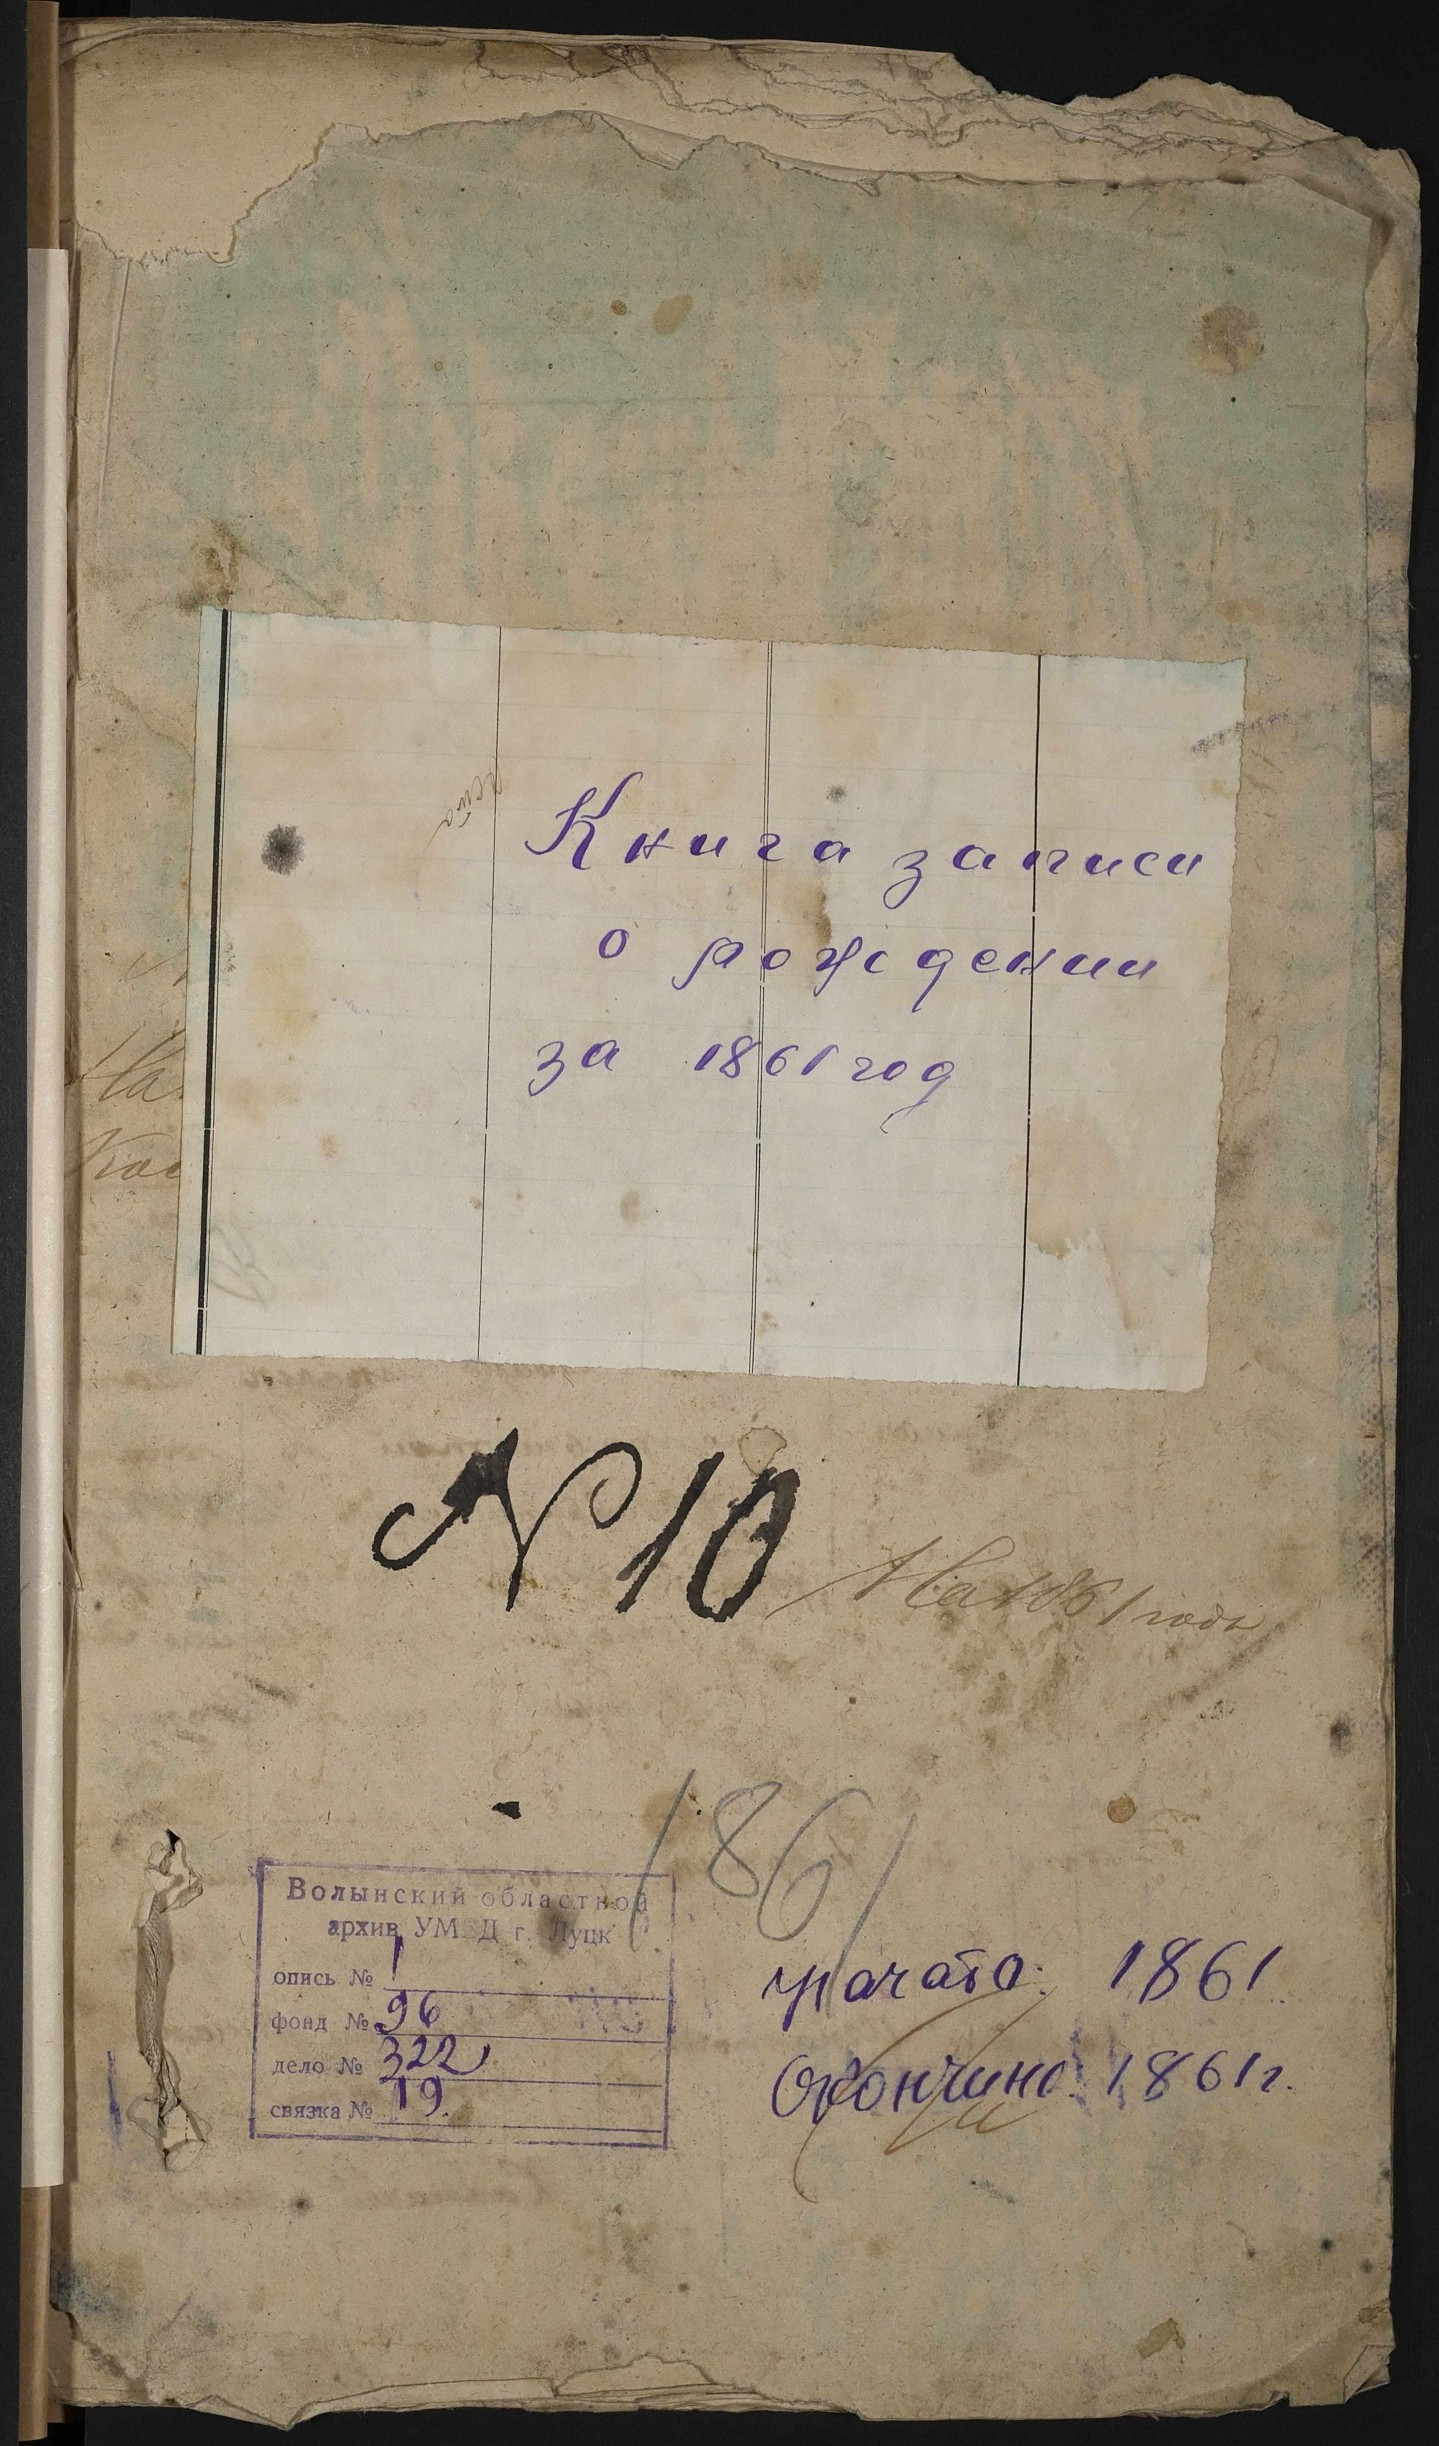 Книга записи
о рождении
за 1861 год
На
Кос
N 10
На 1861 годъ
1861
Волынский областной
архив УМВД г. Луцк
опись № 1
фонд № 96
дело № 322
связка № 19.
Начато: 1861
Окончено: 1861 г.